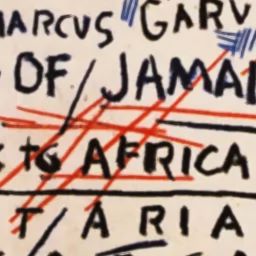 MARCUS GARV
OF JAMAI
to AFRICA
T/ARIA